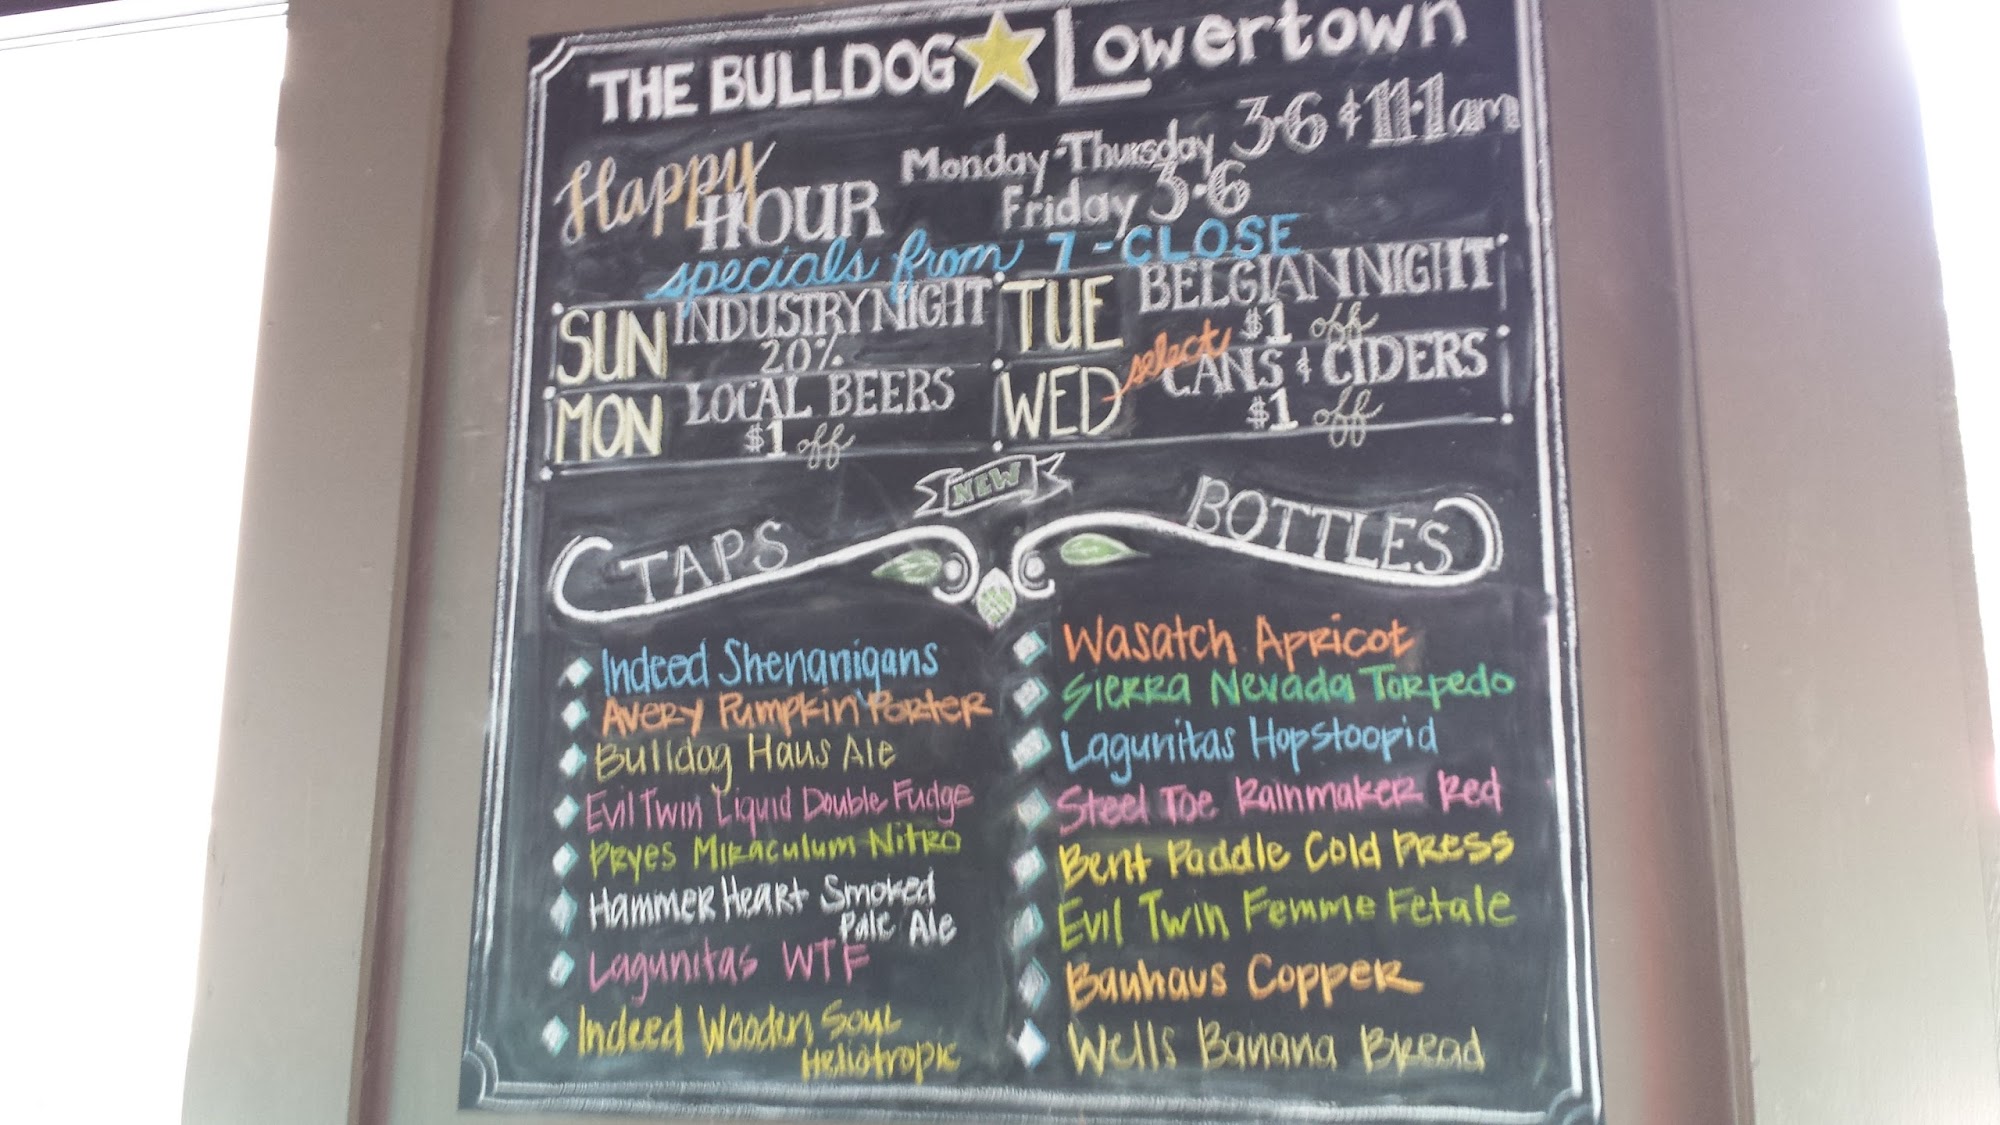 THE BULLDOG Lowertown
Happy HOUR
Monday-Thursday 3-6 & 11-1am
Friday 3-6
specials from 7-CLOSE
SUN INDUSTRY NIGHT
20%
MON LOCAL BEERS
$1 off
TUE BELGIAN NIGHT
$1 off
WED select CANS & CIDERS
$1 off
NEW
TAPS
Indeed Shenanigans
Avery Pumpkin Porter
Bulldog Haus Ale
Evil Twin Liquid Double Fudge
Pryes Miraculum Nitro
Hammer Heart Smoked
Pale Ale
Lagunitas WTF
Indeed Wooden Soul
Heliotropic
BOTTLES
Wasatch Apricot
Sierra Nevada Torpedo
Lagunitas Hopstoopid
Steel Toe Rainmaker Red
Bent Paddle Cold Press
Evil Twin Femme Fetale
Bauhaus Copper
Wells Banana Bread